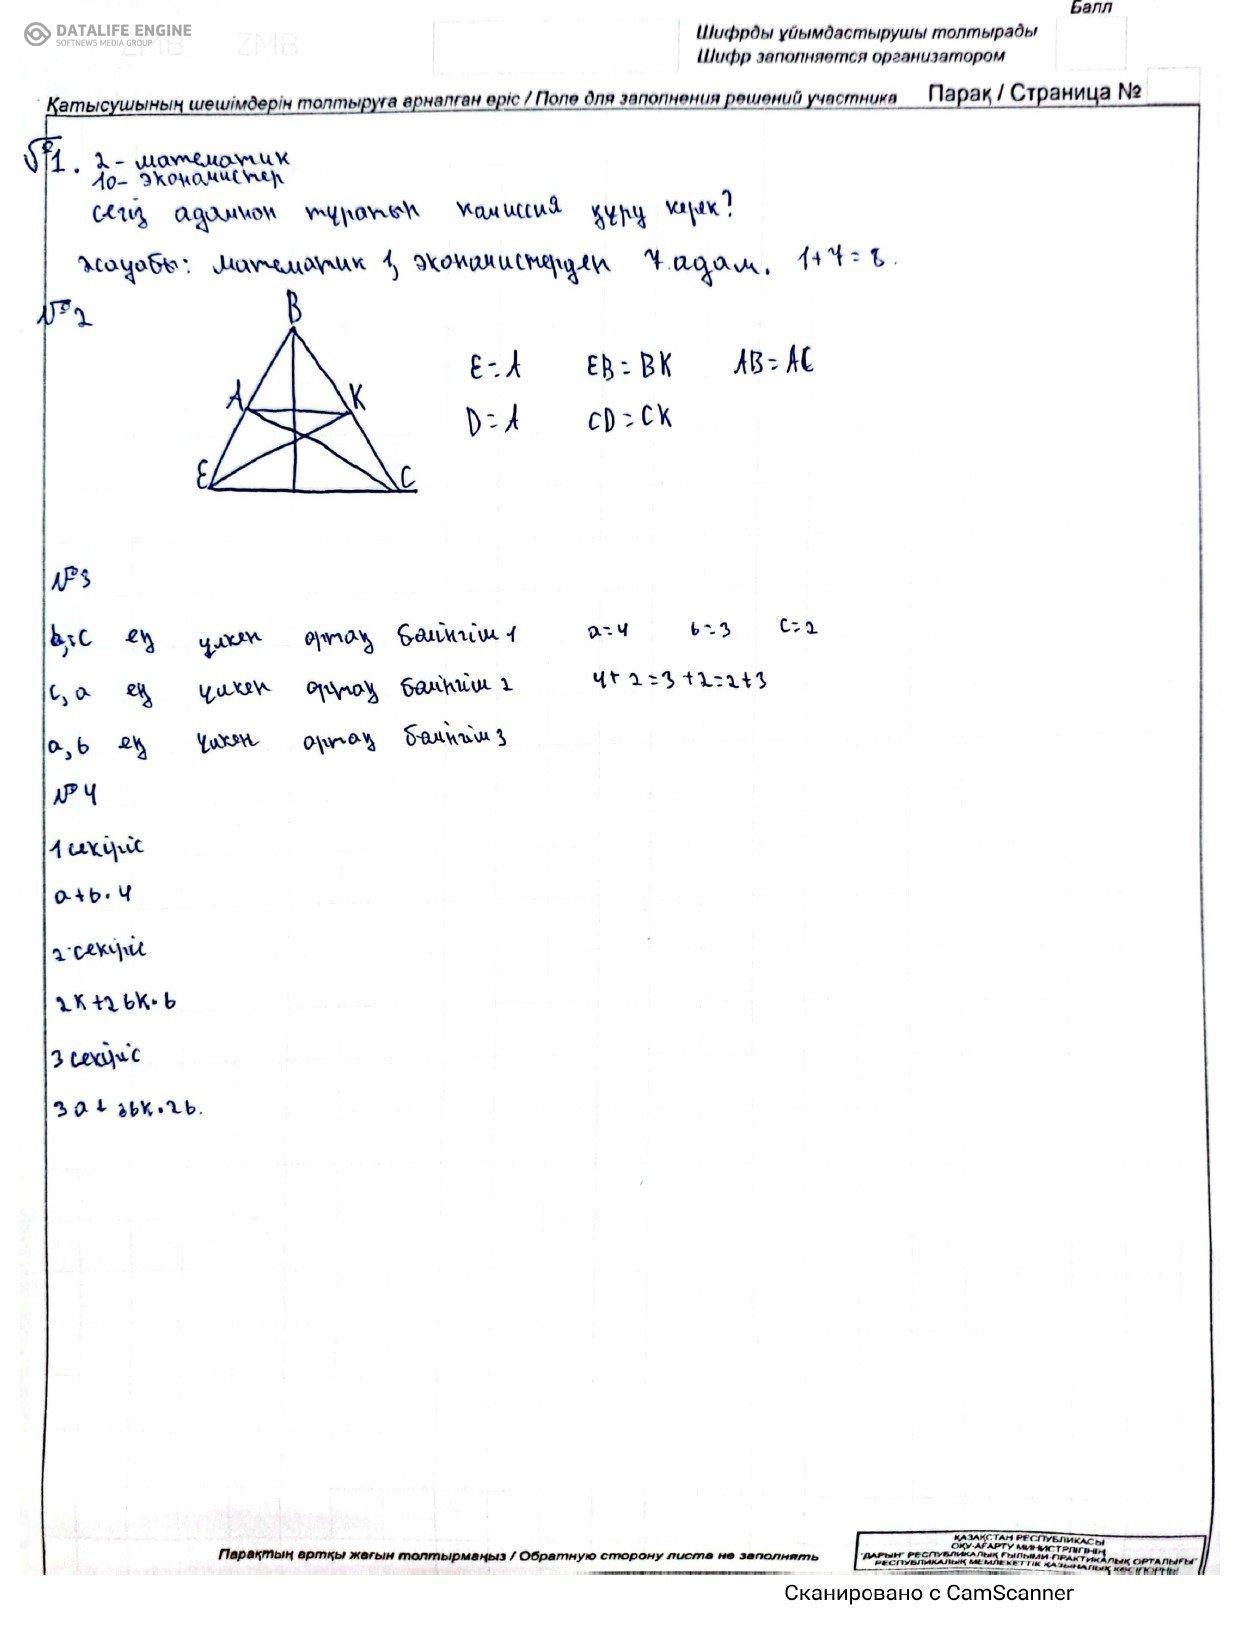 DATALIFE ENGINE
SOFTNEWS MEDIA GROUP
ZMB
Балл
Шифрды ұйымдастырушы толтырады
Шифр заполняется организатором
Қатысушының шешімдерін толтыруға арналған өріс / Поле для заполнения решений участника
Парақ / Страница №
№1. 2 - математик
10- экономистер
сегіз адамнон тұратын камиссия құру керек?
жауабы: математик 1, экономистерден 7 адам. 1+7=8.
№2
B
A K
E C
E=A EB=BK AB=AC
D=A CD=CK
№3
b;c ең үлкен ортақ бөлінгіш 1 a=4 b=3 c=2
c, a ең үлкен ортақ бөлінгіш 2 4+2=3+2=2+3
a, b ең үлкен ортақ бөлінгіш 3
№4
1 секіріс
a+b·4
2-секіріс
2k+2bk·b
3 секіріс
3a+3bk·2b.
Парақтың артқы жағын толтырмаңыз / Обратную сторону листа не заполнять
ҚАЗАҚСТАН РЕСПУБЛИКАСЫ
ОҚУ-АҒАРТУ МИНИСТРЛІГІНІҢ
"ДАРЫН" РЕСПУБЛИКАЛЫҚ ҒЫЛЫМИ-ПРАКТИКАЛЫҚ ОРТАЛЫҒЫ"
РЕСПУБЛИКАЛЫҚ МЕМЛЕКЕТТІК ҚАЗЫНАЛЫҚ КӘСІПОРНЫ
Сканировано с CamScanner